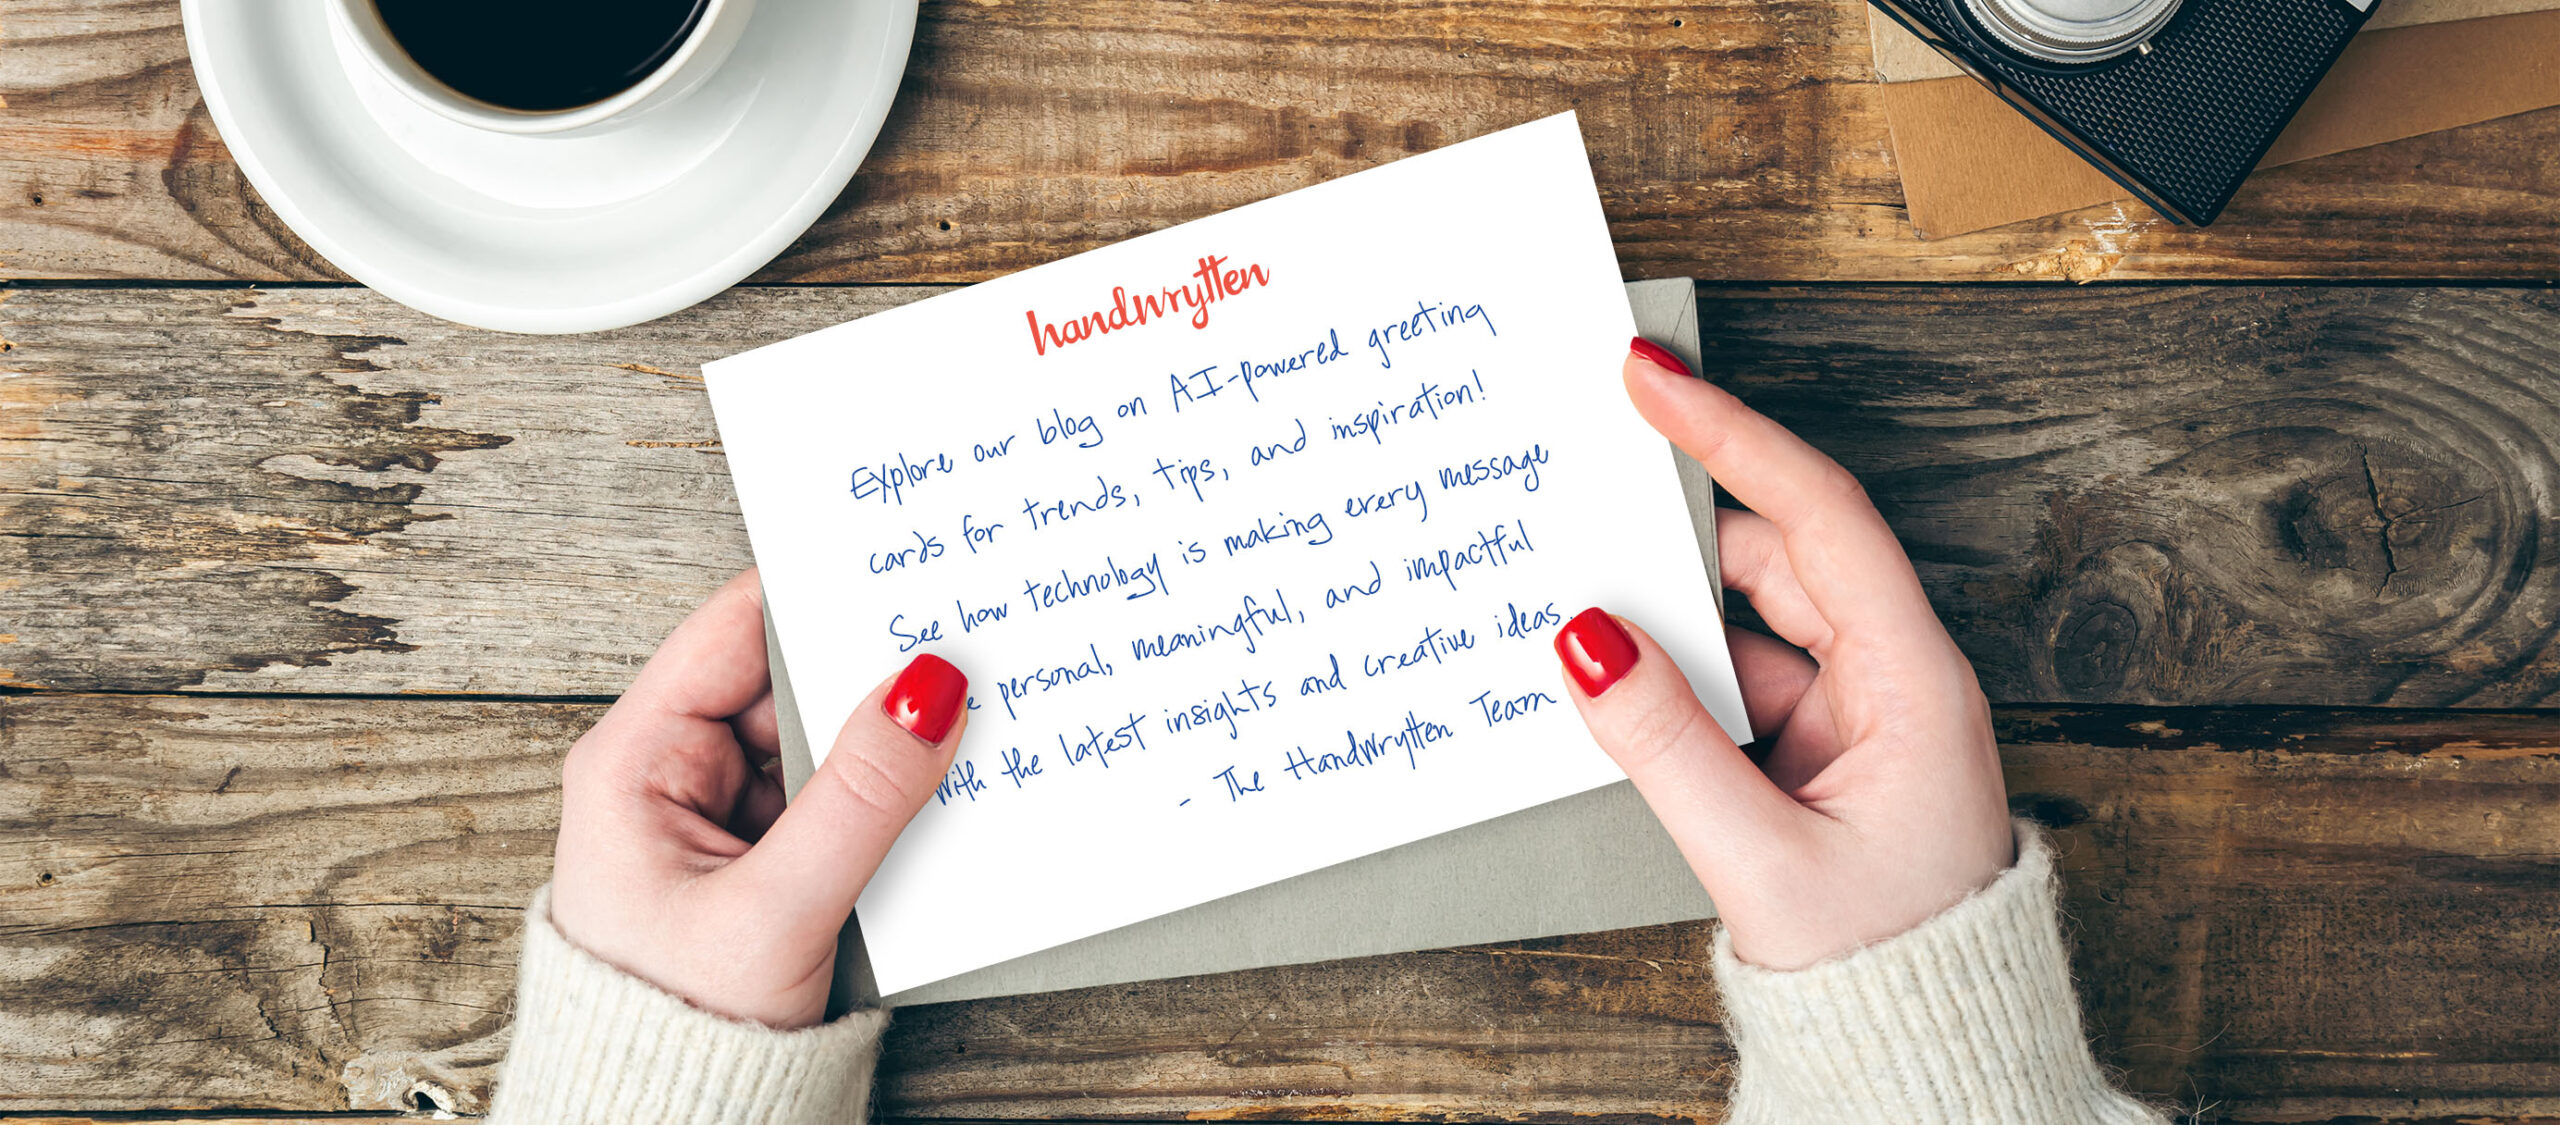 handwrytten
Explore our blog on AI-powered greeting
cards for trends, tips, and inspiration!
See how technology is making every message
personal, meaningful, and impactful
with the latest insights and creative ideas.
- The Handwrytten Team